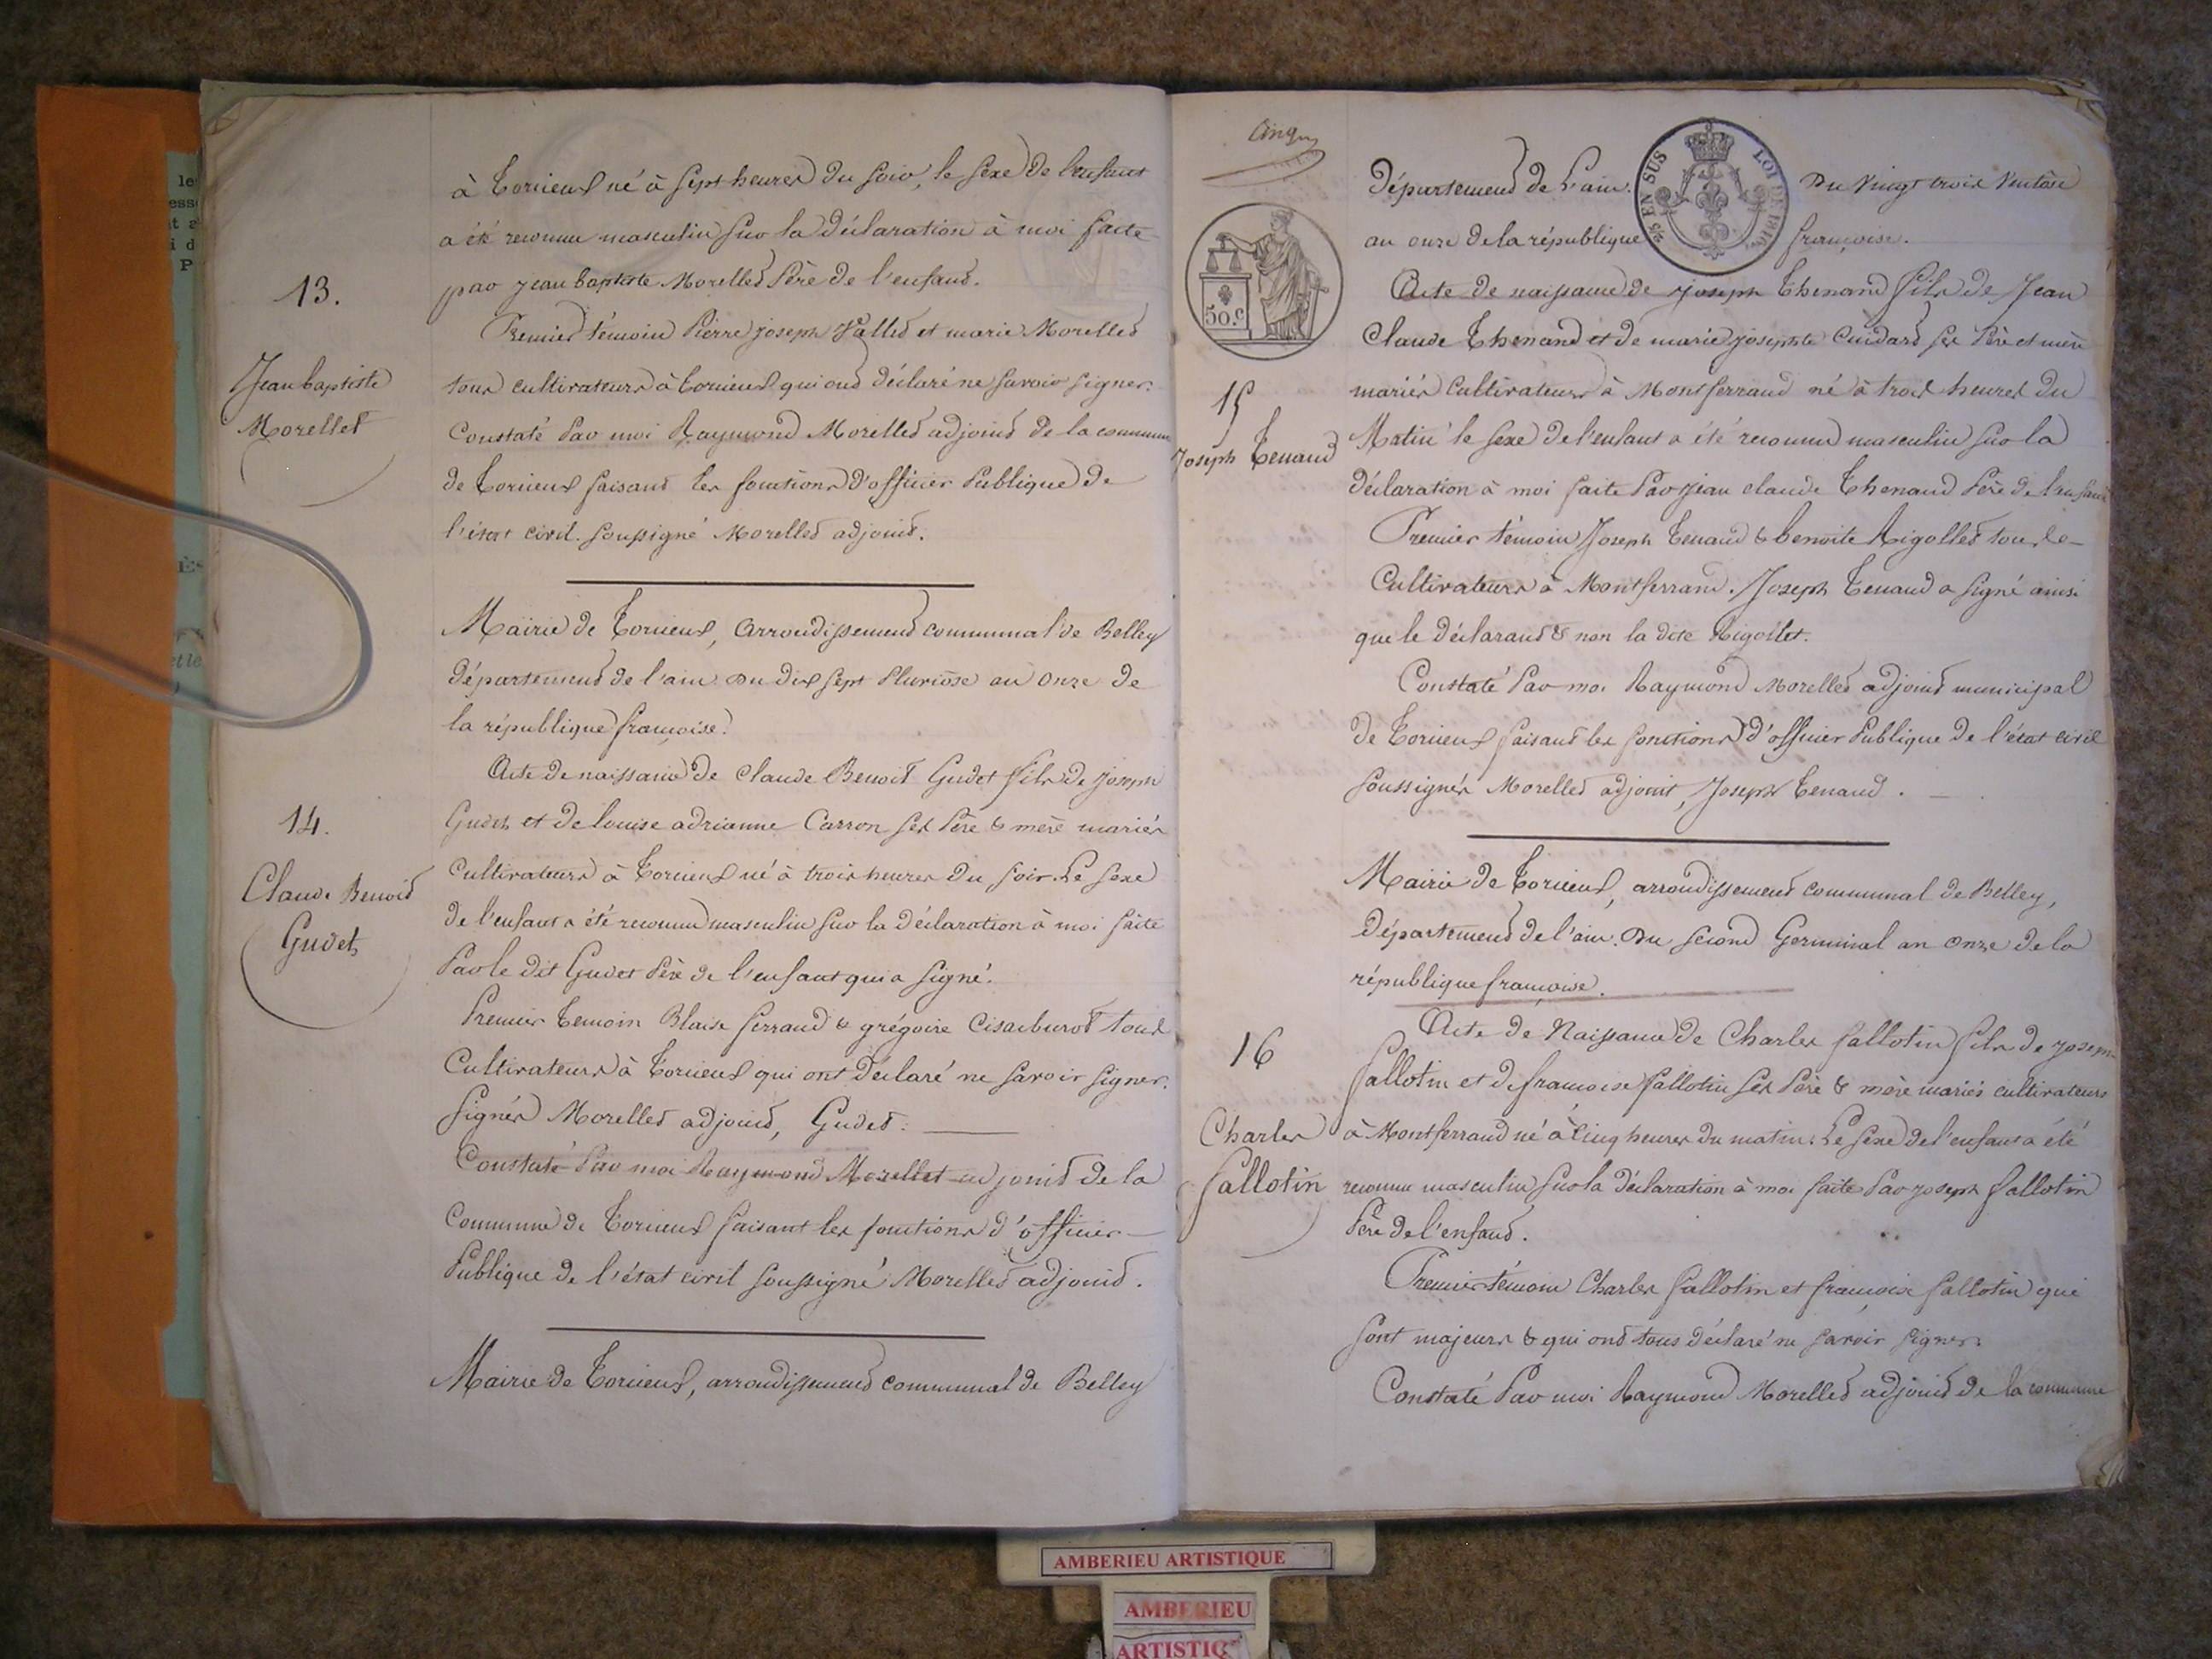 à Torcieux né à sept heures du soir, le sexe de l'enfant
a été reconnu masculin sur la déclaration à moi faite
par jean baptiste Morellet Père de l'enfant.
13.
Jean baptiste
Morellet
Premier témoin Pierre joseph Vallet et marie Morellet
tous cultivateurs à Torcieux qui ont déclaré ne savoir signer.
Constaté Par moi Raymond Morellet adjoint de la commune
de Torcieux faisant les fonctions d'officier Publique de
l'état civil. soussigné Morellet adjoint.
Mairie de Torcieux, arrondissement communal de Belley
département de l'ain. Du dix sept Pluviôse an onze de
la république françoise.
14.
Claude Benoit
Gudet
Acte de naissance de Claude Benoit Gudet fils de joseph
Gudet et de louise adrianne Carron ses Père & mère mariés
Cultivateurs à Torcieux né à trois heures du soir. Le sexe
de l'enfant a été reconnu masculin sur la déclaration à moi faite
Par le dit Gudet Père de l'enfant qui a signé.
Premier Temoin Blaise ferrand & grégoire tous
Cultivateurs à Torcieux qui ont déclaré ne savoir signer.
signés Morellet adjoint, Gudet.
Constaté Par moi Raymond Morellet adjoint de la
Commune de Torcieux faisant les fonctions d'officier
Publique de l'état civil soussigné Morellet adjoint.
Mairie de Torcieux, arrondissement communal de Belley
Cinq
Département de l'ain. Du Vingt trois Ventôse
an onze de la république françoise.
EN SUS LOI DE 1816
50.c
15
Joseph Tenand
Acte de naissance de joseph Thenand fils de Jean
Claude Thenand et de marie josephte ses Père et mère
mariés Cultivateurs à Montferrand né à trois heures du
Matin le sexe de l'enfant a été reconnu masculin sur la
déclaration à moi faite Par jean claude Thenand Père de l'enfant
Premier témoin Joseph Tenand & benoite Rigollet tous
Cultivateurs à Montferrand. Joseph Tenand a signé ainsi
que le déclarant & non la dite Rigollet.
Constaté Par moi Raymond Morellet adjoint municipal
de Torcieux faisant les fonctions d'officier Publique de l'état civil
soussignés Morellet adjoint, Joseph Tenand.
Mairie de Torcieux, arrondissement communal de Belley,
Département de l'ain. Du second Germinal an onze de la
république françoise.
16
Charles
fallotin
Acte de Naissance de Charles fallotin fils de joseph
fallotin et de francoise fallotin ses Père & mère mariés cultivateurs
à Montferrand né à Cinq heures du matin. Le sexe de l'enfant a été
reconnu masculin sur la déclaration à moi faite Par joseph fallotin
Père de l'enfant.
Premier témoin Charles fallotin et françoise fallotin qui
sont majeurs & qui ont tous déclaré ne savoir signer.
Constaté Par moi Raymond Morellet adjoint de la commune
AMBERIEU ARTISTIQUE
AMBERIEU
ARTISTIQ